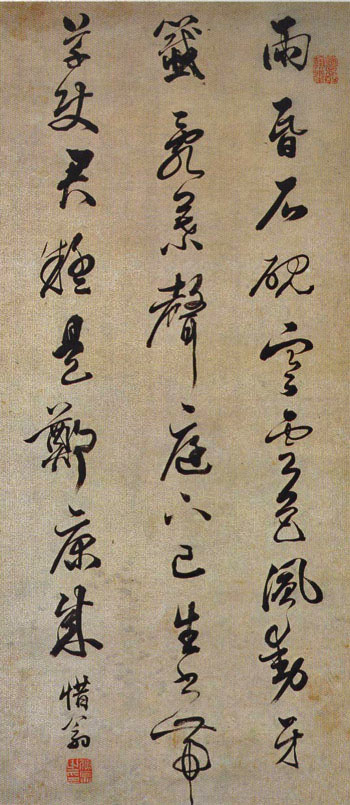 雨昏石硯寒雲色風動牙
籤亂葉聲庭下已生書帶
草使君疑是鄭康成
惜翁